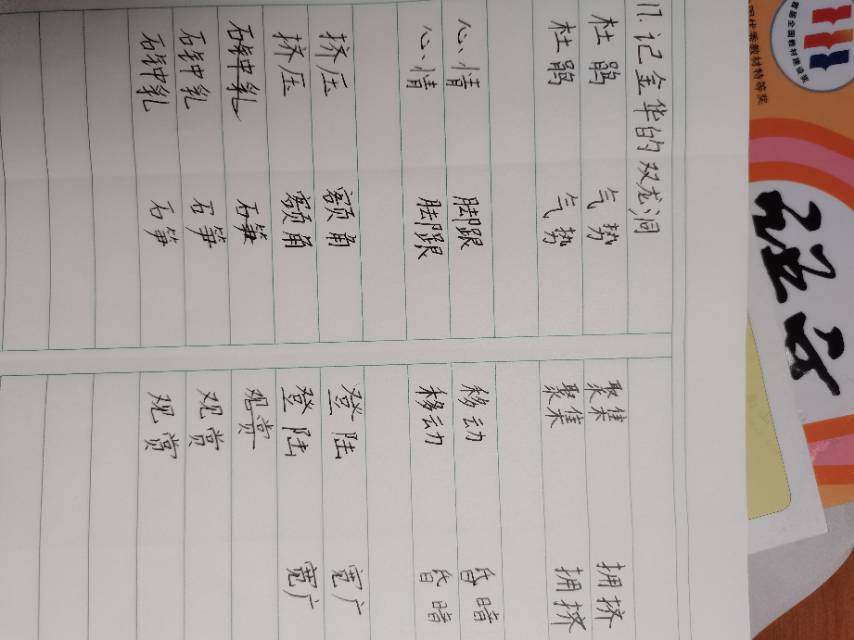 首届全国教材建设奖
国优秀教材特等奖
语文
17. 记金华的双龙洞
杜鹃 气势 聚集 拥挤
杜鹃 气势 聚集 拥挤
心情 脚跟 移动 昏暗
心情 脚跟 移动 昏暗
挤压 额角 登陆 宽广
挤压 额角 登陆 宽广
石钟乳 石笋 观赏
石钟乳 石笋 观赏
石钟乳 石笋 观赏